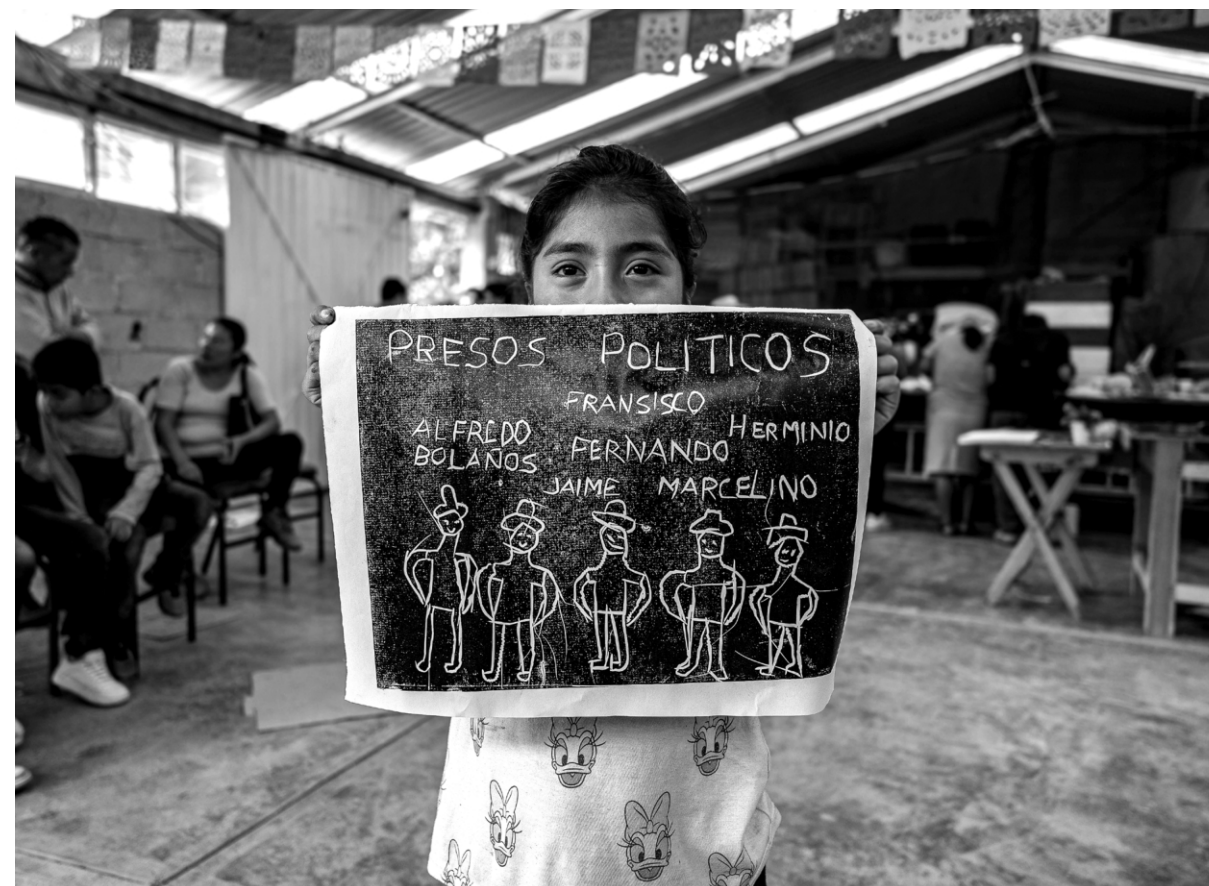 PRESOS POLITICOS
FRANSISCO
ALFREDO
BOLAÑOS
FERNANDO
HERMINIO
JAIME MARCELINO